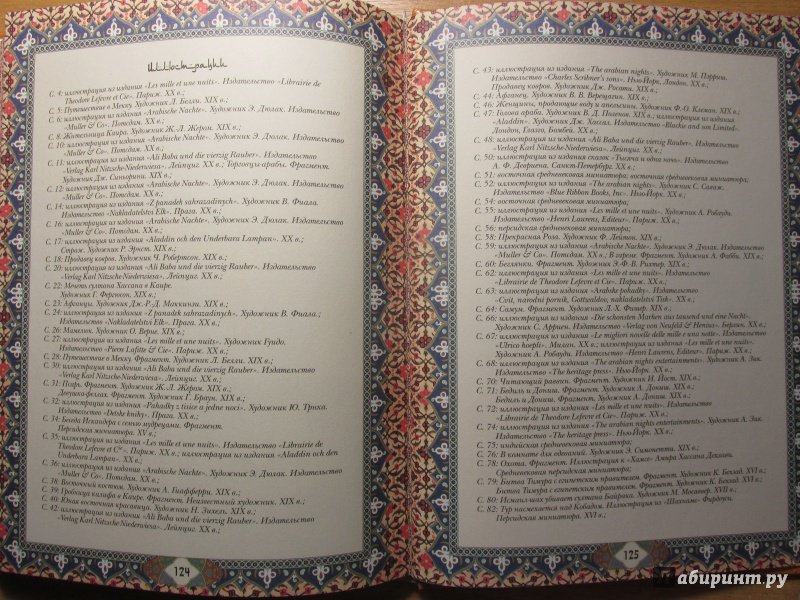 Иллюстрации
С. 4: иллюстрация из издания «Les mille et une nuits». Издательство «Librairie de
Theodor Lefevre et Cie». Париж. XX в.;
С. 5: Путешествие в Мекку. Художник Л. Белли. XIX в.;
С. 6: иллюстрация из издания «Arabische Nachte». Художник Э. Дюлак. Издательство
«Muller & Co». Потсдам. XX в.;
С. 8: Жительница Каира. Художник Ж.Л. Жером. XIX в.;
С. 10: иллюстрация из издания «Arabische Nachte». Художник Э. Дюлак. Издательство
«Muller & Co». Потсдам. XX в.;
С. 11: иллюстрация из издания «Ali Baba und die vierzig Rauber». Издательство
«Verlag Karl Nitzsche-Niederwiesa». Лейпциг. XX в.; Торговцы-арабы. Фрагмент.
Художник Дж. Синьорини. XIX в.;
С. 12: иллюстрация из издания «Arabische Nachte». Художник Э. Дюлак. Издательство
«Muller & Co». Потсдам. XX в.;
С. 14: иллюстрация из издания «Z panadek sahrazadinych». Художник В. Фиала.
Издательство «Nakladatelstvi Elk». Прага. XX в.;
С. 16: иллюстрация из издания «Arabische Nachte». Художник Э. Дюлак. Издательство
«Muller & Co». Потсдам. XX в.;
С. 17: иллюстрация из издания «Aladdin och den Underbara Lampan». XX в.;
Страж. Художник Р. Эрнст. XIX в.;
С. 18: Продавец ковров. Художник Ч. Робертсон. XIX в.;
С. 20: иллюстрация из издания «Ali Baba und die vierzig Rauber». Издательство
«Verlag Karl Nitzsche-Niederwiesa». Лейпциг. XX в.;
С. 22: Мечеть султана Хассана в Каире.
Художник Г. Фергюсон. XIX в.;
С. 23: Афганцы. Художник Дж. Р.Д. Маккензи. XIX в.;
С. 24: иллюстрация из издания «Z panadek sahrazadinych». Художник В. Фиала.;
Издательство «Nakladatelstvi Elk». Прага. XX в.;
С. 26: Мамелюк. Художник О. Верне. XIX в.;
С. 27: иллюстрация из издания «Les mille et une nuits». Художник Гуидо.
Издательство «Pierre Lafitte & Cie». Париж. XX в.;
С. 28: Путешествие в Мекку. Фрагмент. Художник Л. Белли. XIX в.;
С. 30: иллюстрация из издания «Ali Baba und die vierzig Rauber». Издательство
«Verlag Karl Nitzsche-Niederwiesa». Лейпциг. XX в.;
С. 31: Пифр. Фрагмент. Художник Ж. Л. Жером. XIX в.;
Девушка-феллах. Фрагмент. Художник Г. Браун. XIX в.;
С. 32: иллюстрация из издания «Pahadky z tisice a jedne noci». Художник Ю. Триха.
Издательство «Desde knihy». Прага. XX в.;
С. 34: Беседа Искандера с семью мудрецами. Фрагмент.
Персидская миниатюра. XV в.;
С. 35: иллюстрация из издания «Les mille et une nuits». Издательство «Librairie de
Theodor Lefevre et Cie». Париж. XX в.; иллюстрация из издания «Aladdin och den
Underbara Lampan». XX в.;
С. 36: иллюстрация из издания «Arabische Nachte». Художник Э. Дюлак. Издательство
«Muller & Co». Потсдам. XX в.;
С. 38: Восточный костюм. Художник А. Пиаффферри. XIX в.;
С. 39: Гробница халифа в Каире. Фрагмент. Неизвестный художник. XIX в.;
С. 40: Юная восточная красавица. Художник Н. Зихель. XIX в.;
С. 42: иллюстрация из издания «Ali Baba und die vierzig Rauber». Издательство
«Verlag Karl Nitzsche-Niederwiesa». Лейпциг. XX в.;
124
С. 43: иллюстрация из издания «The arabian nights». Художник М. Пэрриш.
Издательство «Charles Scribner's sons». Нью-Йорк, Лондон. XX в.;
Продавец ковров. Художник Дж. Росати. XIX в.;
С. 44: Афганец. Художник В. В. Верещагин. XIX в.;
С. 46: Женщины, продающие воду и апельсины. Художник Ф.-О. Клеман. XIX в.;
С. 47: Голова араба. Художник В. Д. Поленов. XIX в.; иллюстрация из издания
«Aladdin». Художник Дж. Хассал. Издательство «Blackie and son Limited».
Лондон, Глазго, Бомбей. XX в.;
С. 48: иллюстрация из издания «Ali Baba und die vierzig Rauber». Издательство
«Verlag Karl Nitzsche-Niederwiesa». Лейпциг. XX в.;
С. 50: иллюстрация из издания сказок «Тысяча и одна ночь». Издательство
А. Ф. Девриена. Санкт-Петербург. XX в.;
С. 51: восточная средневековая миниатюра; восточная средневековая миниатюра;
С. 52: иллюстрация из издания «The arabian nights». Художник С. Саваж.
Издательство «Blue Ribbon Books, Inc». Нью-Йорк. XX в.;
С. 54: восточная средневековая миниатюра;
С. 55: иллюстрация из издания «Les mille et une nuits». Художник А. Робауди.
Издательство «Henri Laurens, Editeur». Париж. XX в.;
С. 56: персидская средневековая миниатюра;
С. 58: Прекрасная Роза. Художник Ф. Лейтон. XIX в.;
С. 59: иллюстрация из издания «Arabische Nachte». Художник Э. Дюлак. Издательство
«Muller & Co». Потсдам. XX в.; В гареме. Фрагмент. Художник А. Фабби. XIX в.;
С. 60: Беглянки. Фрагмент. Художник Э.-Ф. В. Рихтер. XIX в.;
С. 62: иллюстрация из издания «Les mille et une nuits». Издательство
«Librairie de Theodor Lefevre et Cie». Париж. XX в.;
С. 63: иллюстрация из издания «Arabske pohadky». Издательство
«Cvit, narodni pornik, Gottwaldov, nakladatelstvi Tisk». XX в.;
С. 64: Самум. Фрагмент. Художник Л.-Х. Фишер. XIX в.;
С. 66: иллюстрация из издания «Die schonsten Marken aus tausend und eine Nacht».
Художник С. Аррпен. Издательство «Verlag von Neufeld & Henius». Берлин. XX в.;
С. 67: иллюстрация из издания «Le migliori novelle delle mille e una notte». Издательство
«Ulrico hoepli». Милан. XX в.; иллюстрация из издания «Les mille et une nuits».
Художник А. Робауди. Издательство «Henri Laurens, Editeur». Париж. XX в.;
С. 68: иллюстрация из издания «The arabian nights entertainements». Художник А. Зик.
Издательство «The heritage press». Нью-Йорк. XX в.;
С. 70: Читающий раввин. Фрагмент. Художник И. Ност. XIX в.;
С. 71: Бедиль и Дониш. Фрагмент. Художник А. Дониш. XIX в.;
Бедиль и Дониш. Фрагмент. Художник А. Дониш. XIX в.;
С. 72: иллюстрация из издания «Les mille et une nuits». Издательство
«Librairie de Theodor Lefevre et Cie». Париж. XX в.;
С. 74: иллюстрация из издания «The arabian nights entertainements». Художник А. Зик.
Издательство «The heritage press». Нью-Йорк. XX в.;
С. 75: индийская средневековая миниатюра;
С. 76: В комнате для одеваний. Художник Э. Симонетти. XIX в.;
С. 78: Охота. Фрагмент. Иллюстрация к «Хамсе» Амира Хассана Дехлеви.
Средневековая персидская миниатюра;
С. 79: Битва Тимура с египетским правителем. Фрагмент. Художник К. Бехзад. XVI в.;
Битва Тимура с египетским правителем. Фрагмент. Художник К. Бехзад. XVI в.;
С. 80: Исмаил-шах убивает султана Байрака. Художник М. Мосаввер. XVII в.;
С. 82: Тур насмехается над Кобадом. Иллюстрация из «Шахнаме» Фирдоуси.
Персидская миниатюра. XVI в.;
125
лабиринт.ру